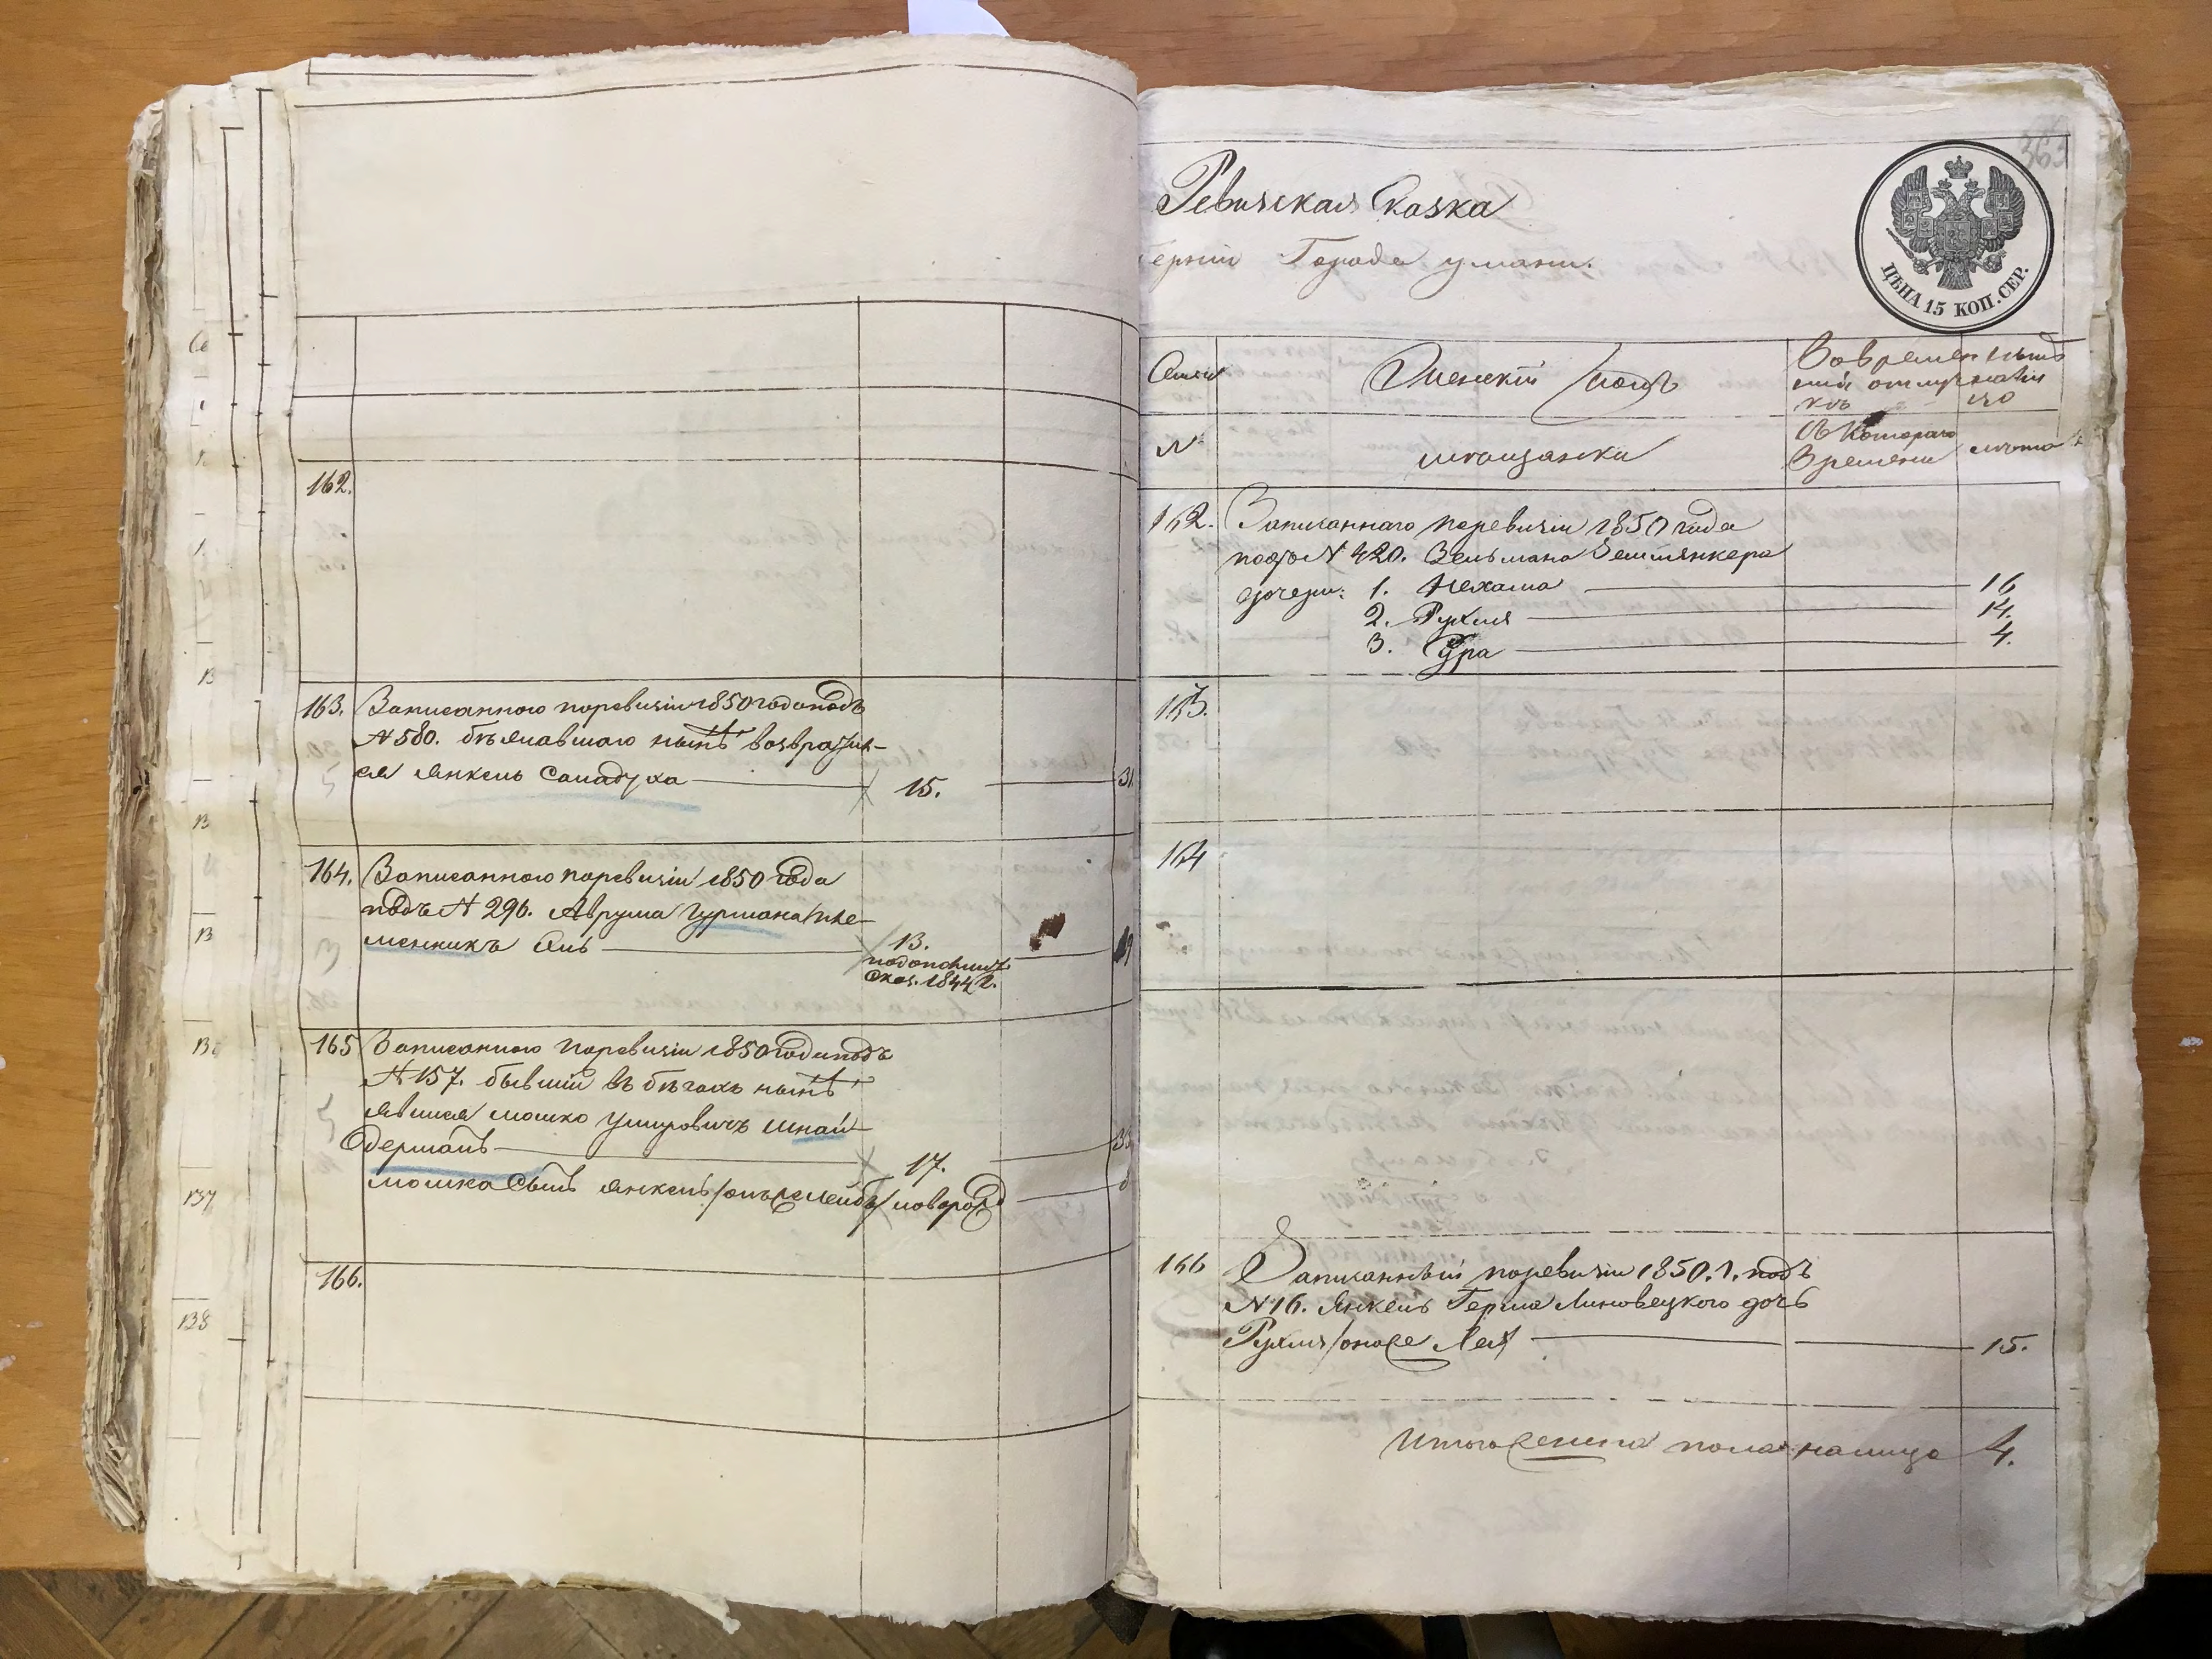 162.
163. Записанного поревизіи 1850 года подъ
№ 580. бѣжавшаго нынѣ возвратил-
ся Янкель Сападуха 15. 31
164. Записанного поревизіи 1850 года
подъ № 296. Аврума Гурмана пле-
менникъ 13.
сказ. 1844 г.
165 Записанного поревизіи 1850 года подъ
№ 157. бывшій въ бѣгахъ нынѣ
явился Мошко Умеровичъ Шнай-
дерманъ 17.
Мошка сынъ Янкель
166.
363
Ревизская Сказка
Города Умани.
ЦѢНА 15 КОП. СЕР.
Женскій полъ
№ мѣщанки
съ котораго
времени лѣта
162. Записаннаго поревизіи 1850 года
подъ № 420. Зельмана
дочери: 1. Нехама 16
2. Рухля 14.
3. Сура 4.
163.
164
166 Записанный поревизіи 1850. г. подъ
№ 16. Янкель Герша Линовецкого дочь
Рухля онаже Лея 15.
Итого женска пола налицо 4.